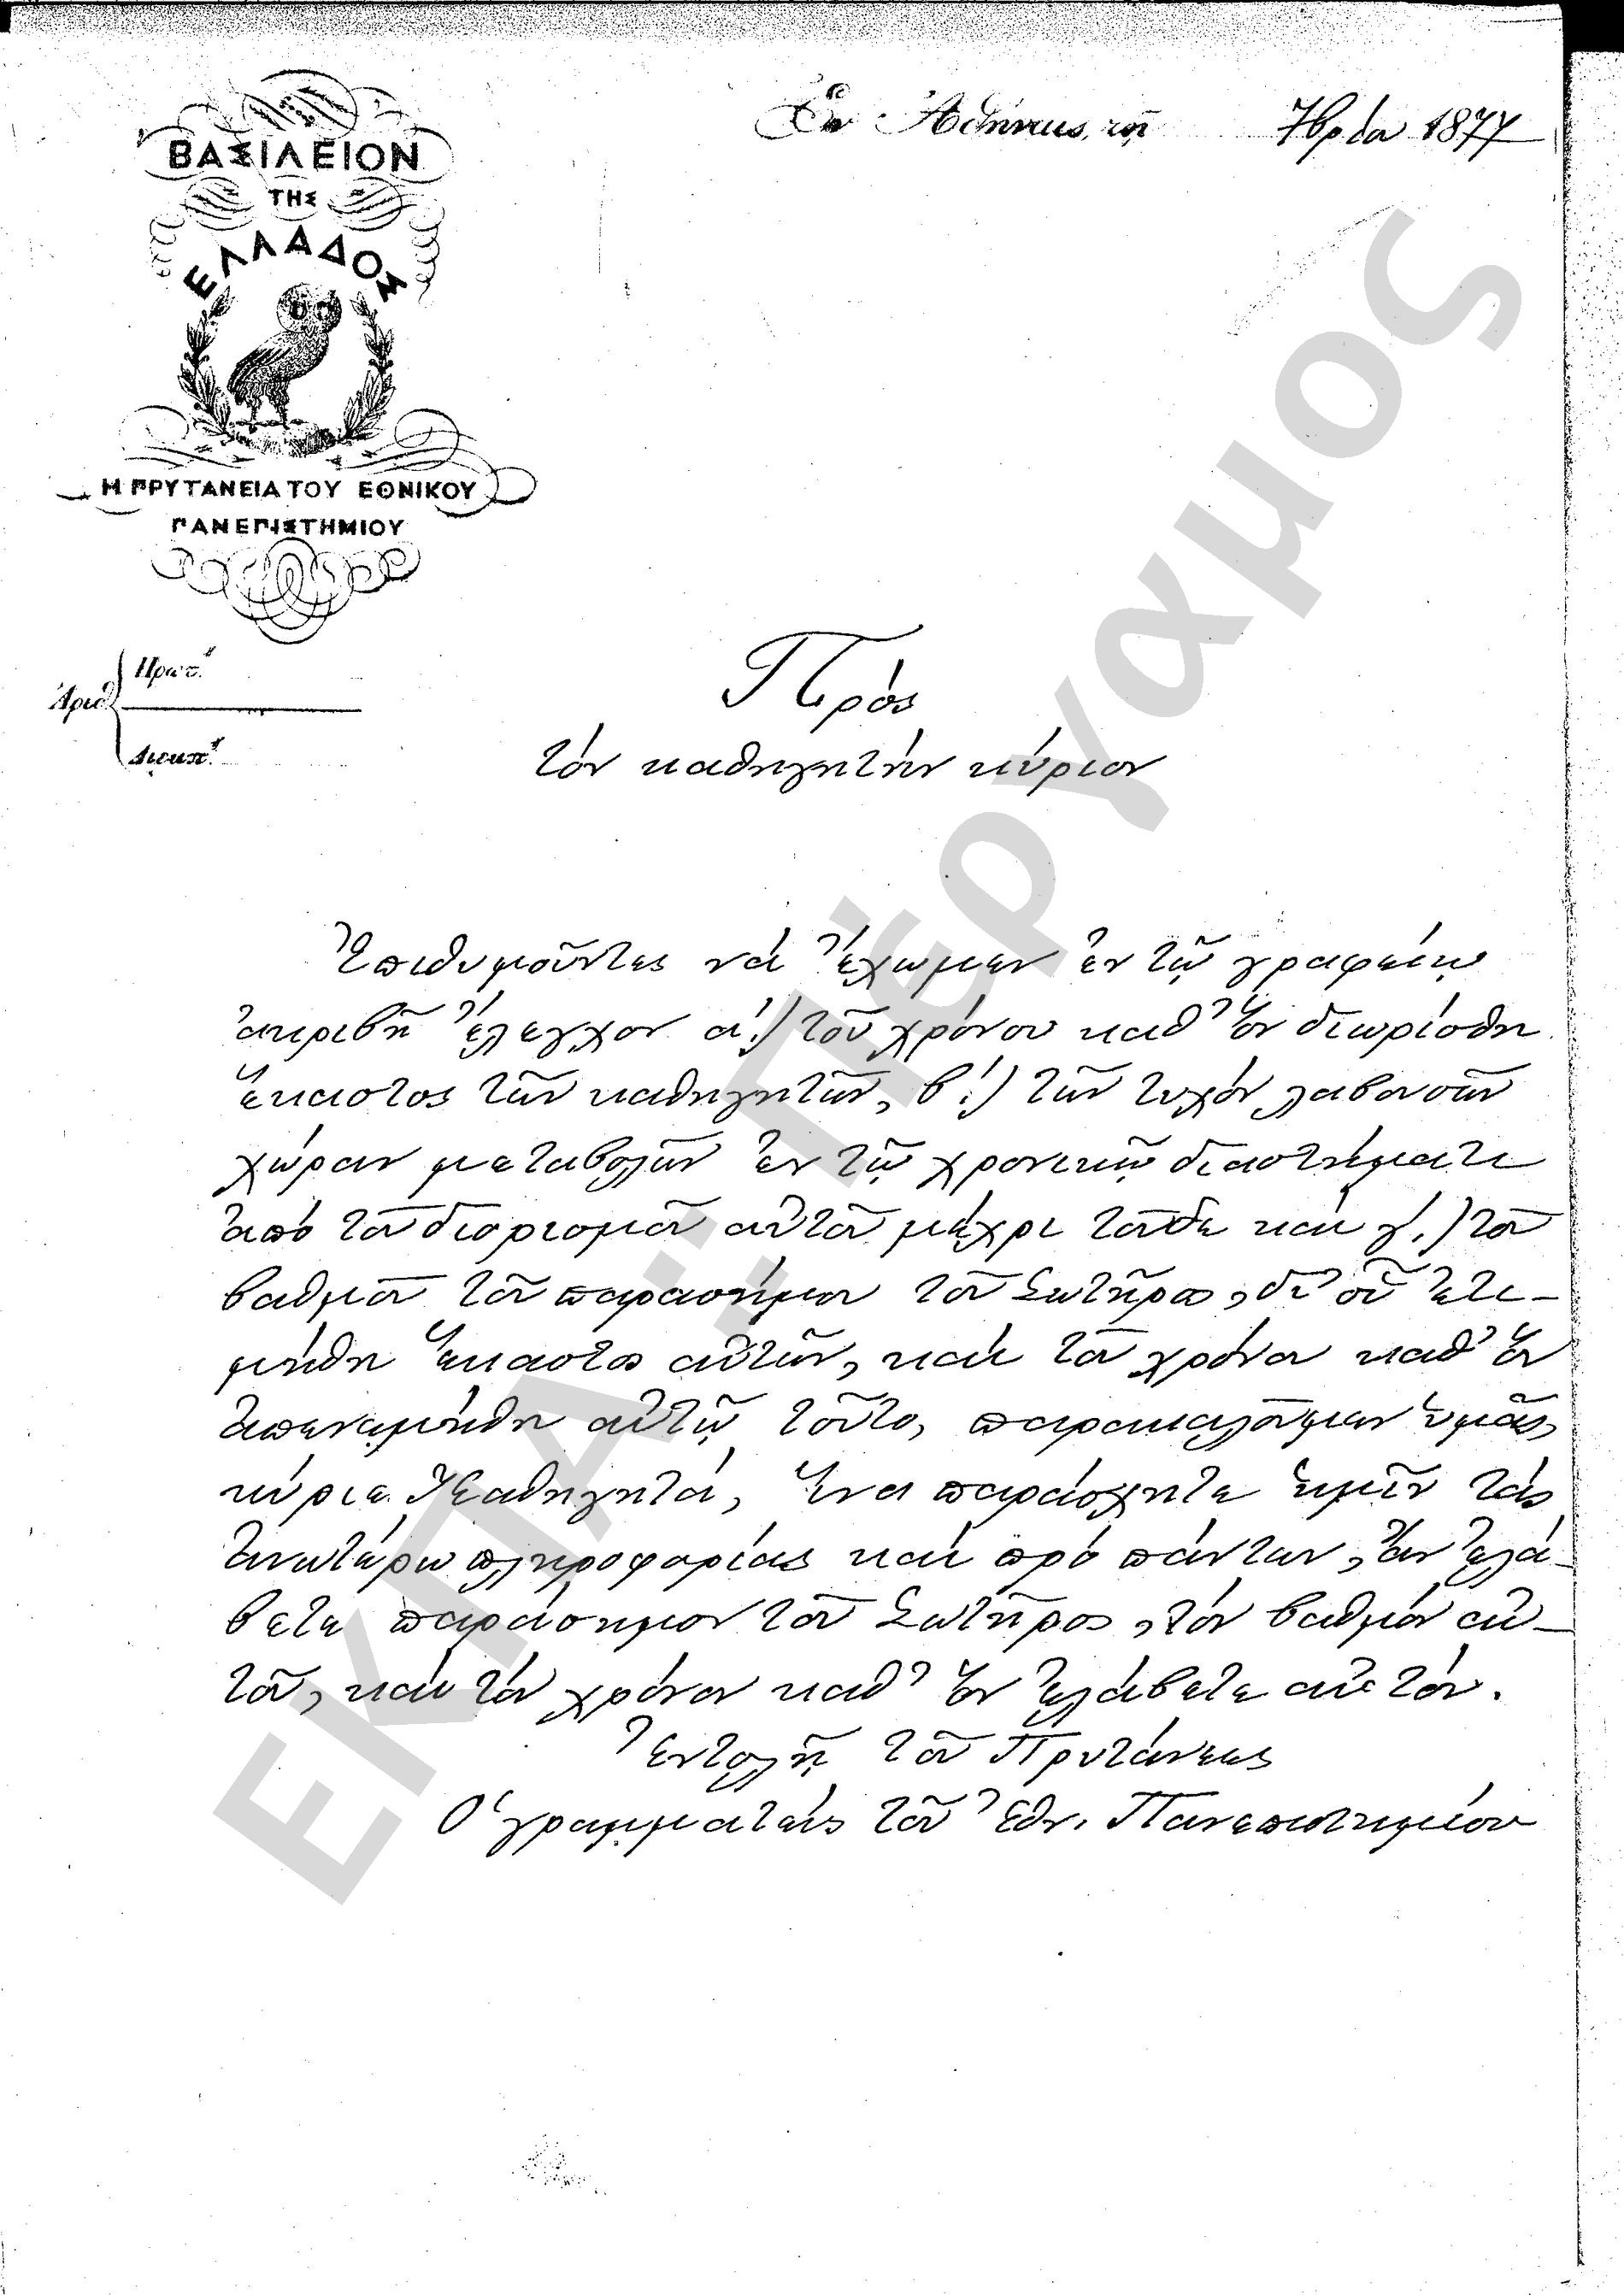 ΒΑΣΙΛΕΙΟΝ
ΤΗΣ
ΕΛΛΑΔΟΣ
Η ΠΡΥΤΑΝΕΙΑ ΤΟΥ ΕΘΝΙΚΟΥ
ΠΑΝΕΠΙΣΤΗΜΙΟΥ
Ἐν Ἀθήναις, τῇ 7βρίου 1877
Ἀριθ.
Πρωτ.
Διεκπ.
Πρὸς
τὸν καθηγητὴν κύριον
Ἐπιθυμοῦντες νὰ ἔχωμεν ἐν τῷ γραφείῳ
ἀκριβῆ ἔλεγχον α'.) τοῦ χρόνου καθ' ὃν διωρίσθη
ἕκαστος τῶν καθηγητῶν, β'.) τῶν τυχὸν λαβουσῶν
χώραν μεταβολῶν ἐν τῷ χρονικῷ διαστήματι
ἀπὸ τοῦ διορισμοῦ αὐτοῦ μέχρι τοῦδε καὶ γ'.) τοῦ
βαθμοῦ τοῦ παρασήμου τοῦ Σωτῆρος, δι' οὗ ἐτι-
μήθη ἕκαστος αὐτῶν, καὶ τοῦ χρόνου καθ' ὃν
ἀπενεμήθη αὐτῷ τοῦτο, παρακαλοῦμεν ὑμᾶς,
κύριε Καθηγητά, ἵνα παράσχητε ἡμῖν τὰς
ἀνωτέρω πληροφορίας καὶ πρὸ πάντων, ἂν ἐλά-
βετε παράσημον τοῦ Σωτῆρος, τὸν βαθμὸν αὐ-
τοῦ, καὶ τὸν χρόνον καθ' ὃν ἐλάβετε αὐτόν.
Ἐντολῇ τοῦ Πρυτάνεως
Ὁ γραμματεὺς τοῦ Ἐθν. Πανεπιστημίου
ΕΚΠΑ: Πέργαμος